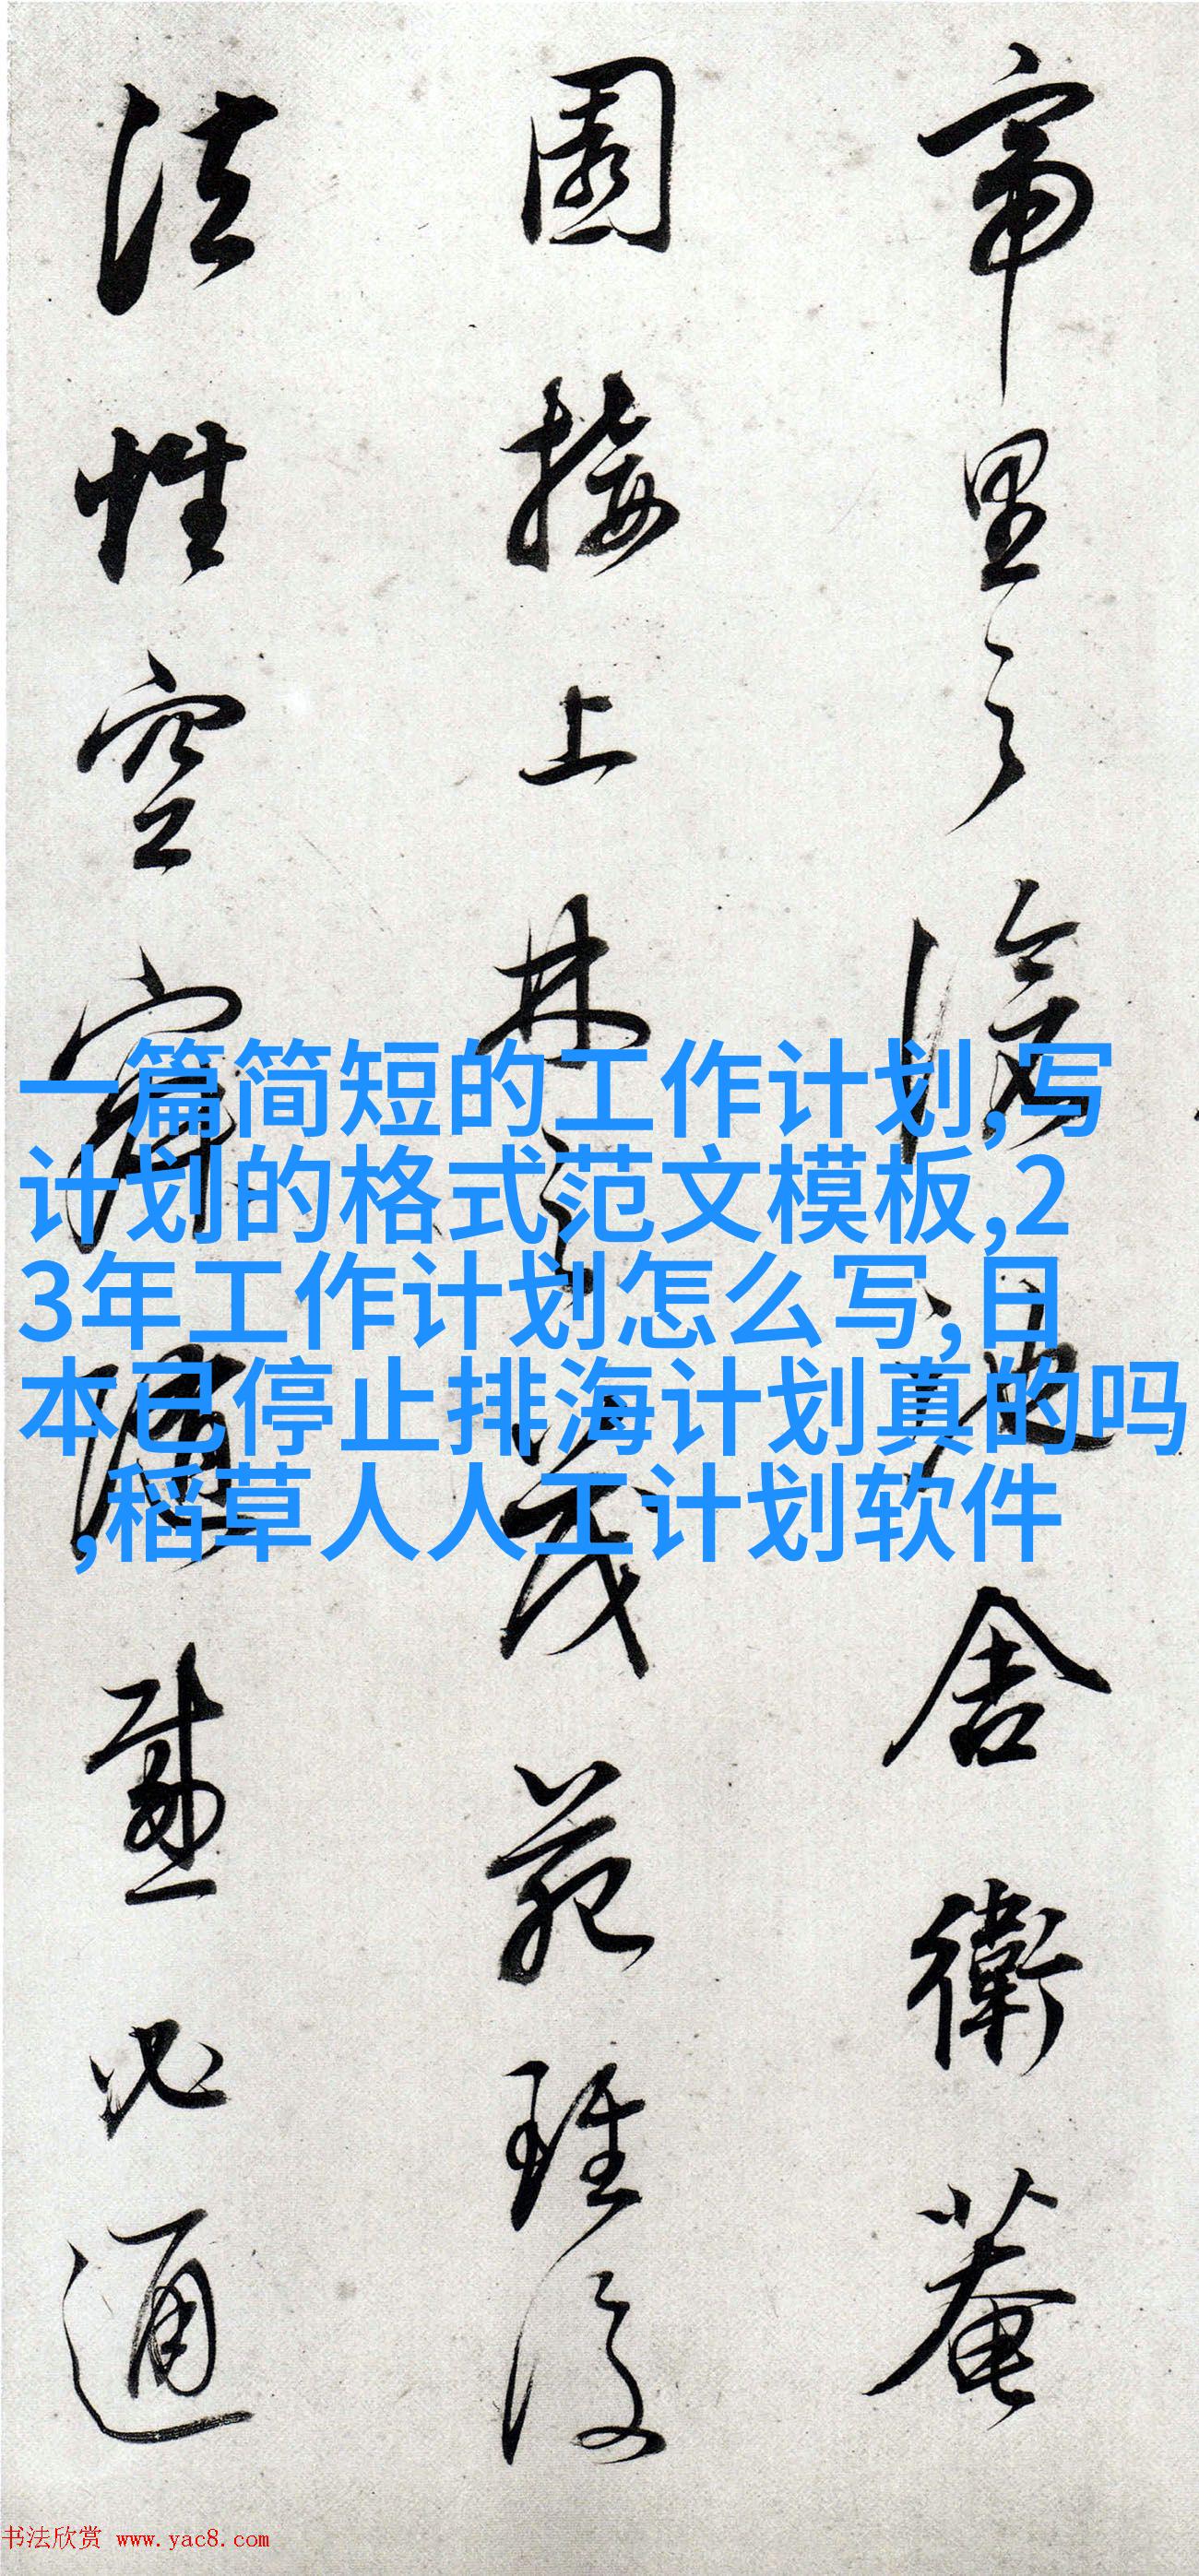 帝里之陰也舍衛菴
園接上林之茂苑琁浚
法性空寂隨感必通
一篇简短的工作计划,写
计划的格式范文模板,2
3年工作计划怎么写,日
本已停止排海计划真的吗
,稻草人人工计划软件
书法欣赏 www.yac8.com